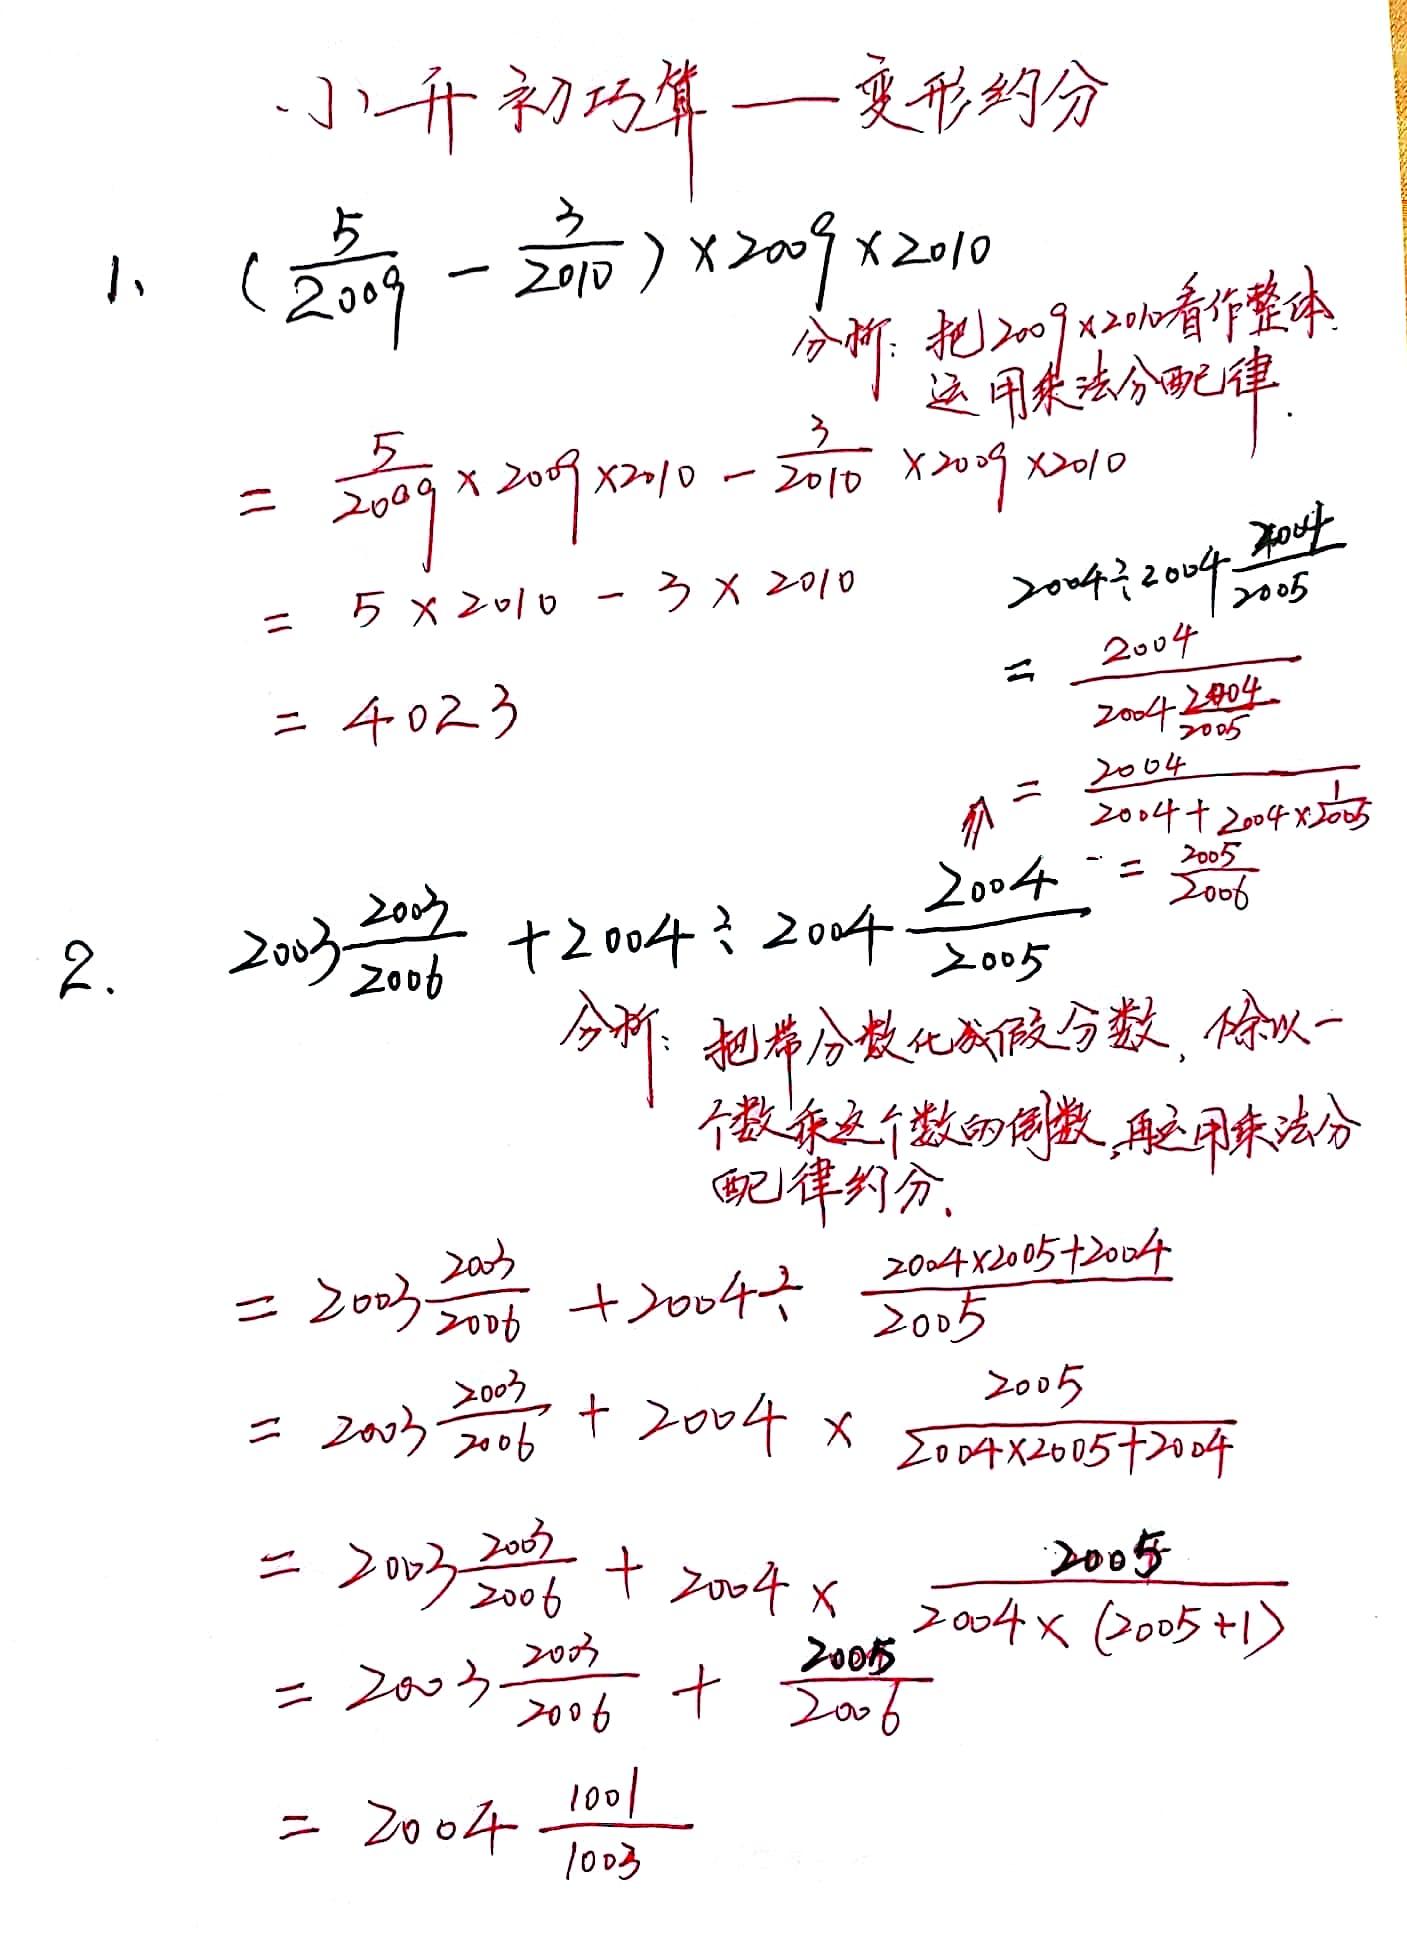 小升初巧算——变形约分
1、 (5/2009 - 3/2010) × 2009 × 2010
分析: 把2009×2010看作整体.
运用乘法分配律.
= 5/2009 × 2009 × 2010 - 3/2010 × 2009 × 2010
= 5 × 2010 - 3 × 2010
= 4023
2004÷2004 2004/2005
= 2004/(2004 2004/2005)
= 2004/(2004+2004×1/2005)
= 2005/2006
2. 2003 2003/2006 + 2004 ÷ 2004 2004/2005
分析: 把带分数化成假分数, 除以一
个数乘这个数的倒数,再运用乘法分
配律约分.
= 2003 2003/2006 + 2004 ÷ (2004×2005+2004)/2005
= 2003 2003/2006 + 2004 × 2005/(2004×2005+2004)
= 2003 2003/2006 + 2004 × 2005/(2004×(2005+1))
= 2003 2003/2006 + 2005/2006
= 2004 1001/1003